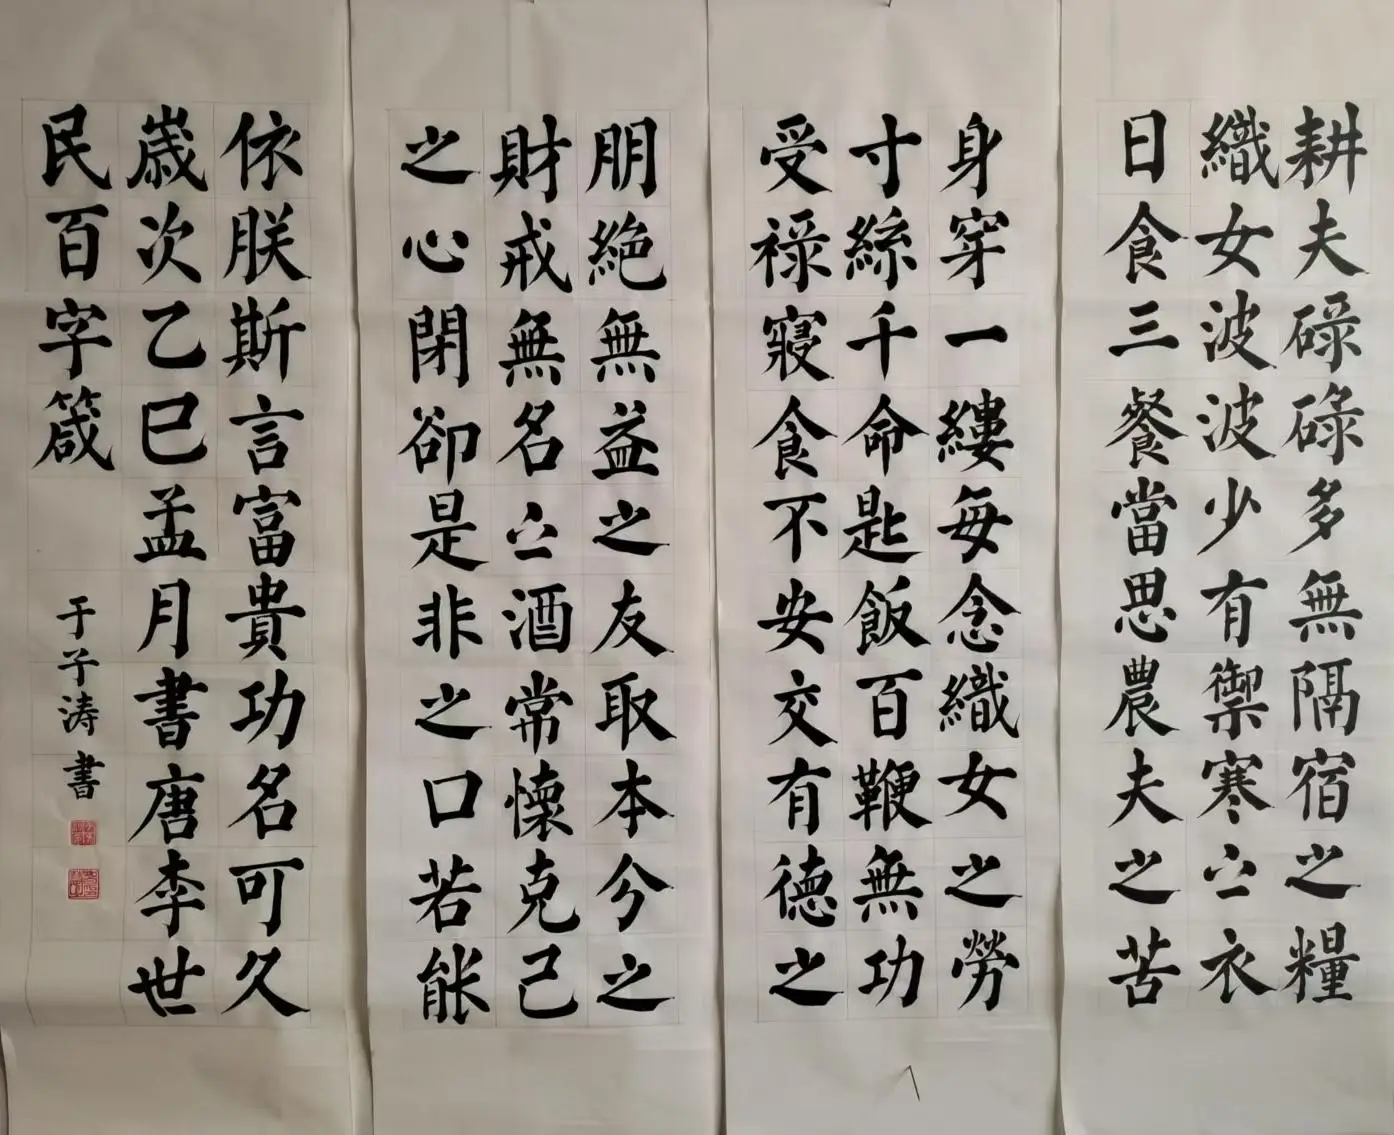 耕夫碌碌多無隔宿之糧
織女波波少有禦寒之衣
日食三餐當思農夫之苦
身穿一縷每念織女之勞
寸絲千命匙飯百鞭無功
受祿寢食不安交有德之
朋絕無益之友取本兮之
財戒無名之酒常懷克己
之心閉卻是非之口若能
依朕斯言富貴功名可久
歲次乙巳孟月書唐李世
民百字箴
于子涛書